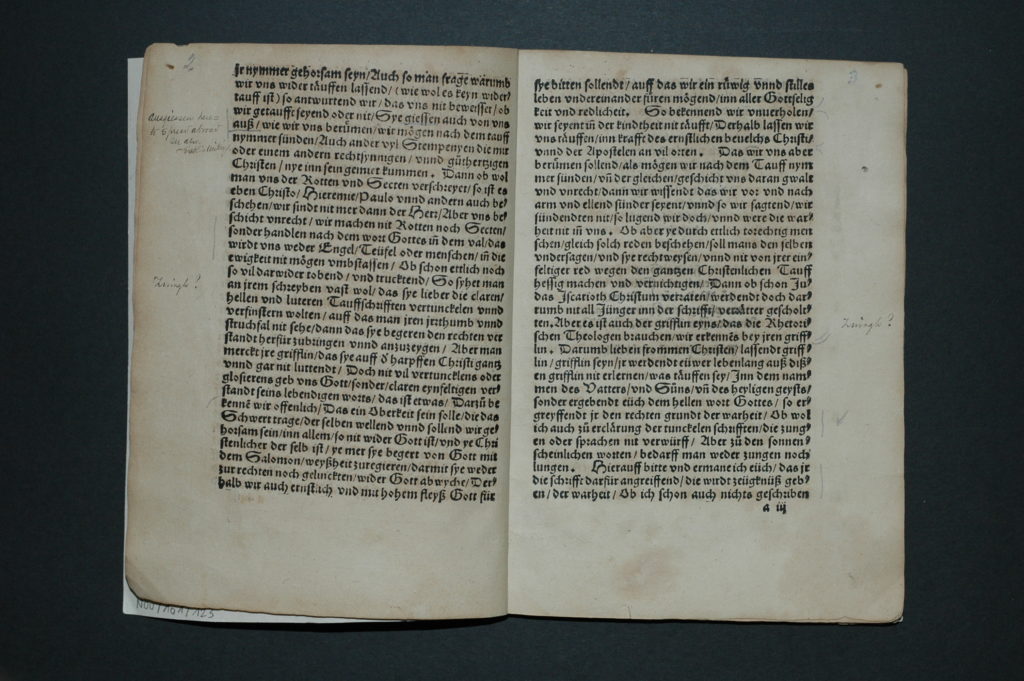 2
jr nymmer gehorsam seyn/Auch so man frage warumb
wir vns wider täuffen lassend/(wie wol es keyn wider⸗
tauff ist) so antwurtend wir/das vns nit bewisset/ob
wir getaufft seyend oder nit/Sye giessen auch von vns
auß/wie wir vns berümen/wir mögen nach dem tauff
nymmer sünden/Auch ander vyl Stempenyen die mir
oder einem andern rechtsynnigen/vnnd güthertzigen
Christen/nye inn sein gemiet kummen. Dann ob wol
man vns der Rotten vnd Secten verschreyet/so ist es
eben Christo/Hieremie/Paulo vnnd andern auch be⸗
schehen/wir sindt nit mer dann der Herr/Aber vns be⸗
schicht vnrecht/wir machen nit Rotten noch Secten/
sonder handlen nach dem wort Gottes in dem val/das
wirdt vns weder Engel/Teüfel oder menschen/in die
ewigkeit nit mögen vmbstossen/Ob schon ettlich noch
so vil darwider tobend/vnd trucktend/So syhet man
an jrem schreyben vast wol/das sye lieber die claren/
hellen vnd luteren Tauffschrifften vertuncklen vnnd
verfinstern wolten/auff das man jren jrrthumb vnnd
struchfal nit sehe/dann das sye begeren den rechten ver
standt herfür zubringen vnnd anzuzeygen/Aber man
merckt jre grifflin/das sye auff d̕ harpffen Christi gantz
vnnd gar nit luttendt/Doch nit vil vertuncklens oder
glosierens geb vns Gott/sonder claren eynfeltigen ver⸗
standt seins lebendigen worts/das ist etwas/Darzů be
kennē wir offenlich/Das ein Oberkeit sein solle/die das
Schwert trage/der selben wellend vnnd sollend wir ge⸗
horsam sein/inn allem/so nit wider Gott ist/vnd ye Chri
stenlicher der selb ist/ye mer sye begert von Gott mit
dem Salomon/weyßheit zuregieren/darmit sye weder
zur rechten noch gelinckten/wider Gott abwyche/Der⸗
halb wir auch ernstlich vnd mit hohem fleyß Gott für
Zwingli?
3
sye bitten sollendt/auff das wir ein rüwig vnnd stilles
leben vndereinander füren mögend/inn aller Gottselig
keit vnd redlicheit. So bekennend wir vnuerholen/
wir seyent in der kindtheit nit täufft/Derhalb lassen wir
vns täuffen/inn krafft des ernstlichen beuelchs Christi/
vnnd der Apostelen an vil orten. Das wir vns aber
berümen sollend/als mögen wir nach dem Tauff nym
mer sünden/vn̄ der gleichen/geschicht vns daran gwalt
vnd vnrecht/dann wir wissendt das wir vor vnd nach
arm vnd ellend sünder seyent/vnnd so wir sagtend/wir
sündendten nit/so lugend wir doch/vnnd were die war⸗
heit nit in̄ vns. Ob aber ye durch ettlich torechtig men
schen/gleich solch reden beschehen/soll mans den selben
vndersagen/vnd sye rechtweysen/vnnd nit von jrer ein⸗
seltiger red wegen den gantzen Christenlichen Tauff
hessig machen vnd vernichtigen/Dann ob schon Ju⸗
das Iscarioth Christum verraten/werdendt doch dar⸗
rumb nit all Jünger inn der schrifft/verräter gescholt⸗
ten. Aber es ist auch der grifflin eyns/das die Rhetori⸗
schen Theologen brauchen/wir erkennēs bey jren griff⸗
lin. Darumb lieben frommen Christen/lassendt griff⸗
lin/grifflin seyn/jr werdendt eüwer lebenlang auß diß⸗
en grifflin nit erlernen/was täuffen sey/Inn dem nam⸗
men des Vatters/vnd Süns/vn̄ des heyligen geysts/
sonder ergebendt eüch dem hellen wort Gottes/so er⸗
greyffendt jr den rechten grundt der warheit/Ob wol
ich auch zů erclärung der tunckelen schrifften/die zung⸗
en oder sprachen nit verwürff/Aber zů den sonnen⸗
scheinlichen worten/bedarff man weder zungen noch
lungen. Hierauff bitte vnd ermane ich eüch/das jr
die schrifft darfür angreiffend/die wirdt zeügknüß geb⸗
en/der warheit/Ob ich schon auch nichts geschriben
a iij
Zwingli?